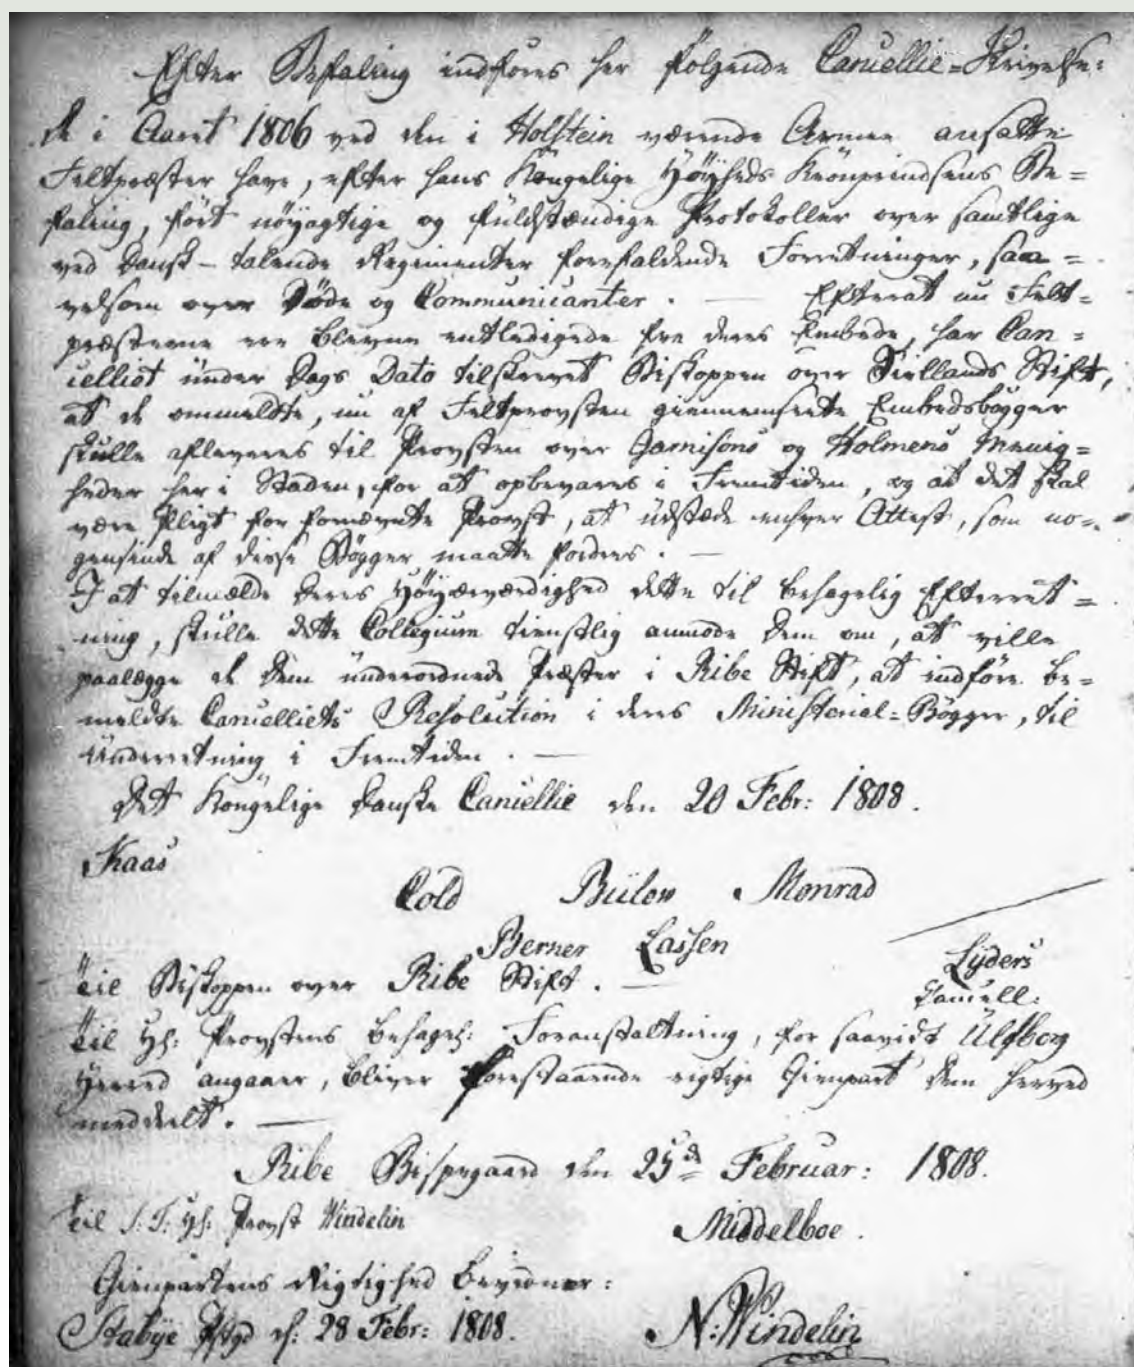 Efter Befaling indføres her følgende Cancellie-Skrivelse:
De i Aaret 1806 ved den i Holstein værende Armee ansatte
Feltpræster have, efter Hans Kongelige Høyheds Kronprindsens Be=
faling, ført nøyagtige og fuldstændige Protokoller over samtlige
ved Dansk-talende Regimenter forefaldende Forretninger, saa=
velsom over Døde og Communicanter. — Efterat nu Felt=
præsterne ere blevne entledigede fra deres Embede, har Can=
celliet under Dags Dato tilskrevet Biskoppen over Siellands Stift,
at de ommeldte, nu af Feltprovsten giennemseete Embedsbøgger
skulle afleveres til Provsten over Garnisons og Holmens Menig=
heder her i Staden, for at opbevares i Fremtiden, og at det skal
være Pligt for fornævnte Provst, at udstæde enhver Attest, som no=
gensinde af disse Bøgger maatte fordres. —
I at tilmælde Deres Høyærværdighed dette til behagelig Efterret=
ning, skulle dette Collegium tienstlig anmode Dem om, at ville
paalægge de Dem underordnede Præster i Ribe Stift, at indføre be=
meldte Cancelliets Resolution i deres Ministerial=Bøgger, til
Underretning i Fremtiden. —
Det Kongelige Danske Cancellie den 20 Febr: 1808.
Kaas
Cold Bülow Monrad
Berner Lassen
Lyders
Cancell:
Til Biskoppen over Ribe Stift. —
Til Hr: Provstens behagel: Foranstaltning, for saavidt Ulfborg
Herred angaaer, bliver forestaaende rigtige Gienpart Dem herved
meddeelt. —
Ribe Bispegaard den 25de Februar: 1808.
Til S: T: Hr: Provst Windelin
Middelboe.
Gienpartens Rigtighed bevidner:
Stabye d: 28 Febr: 1808.
N: Windelin